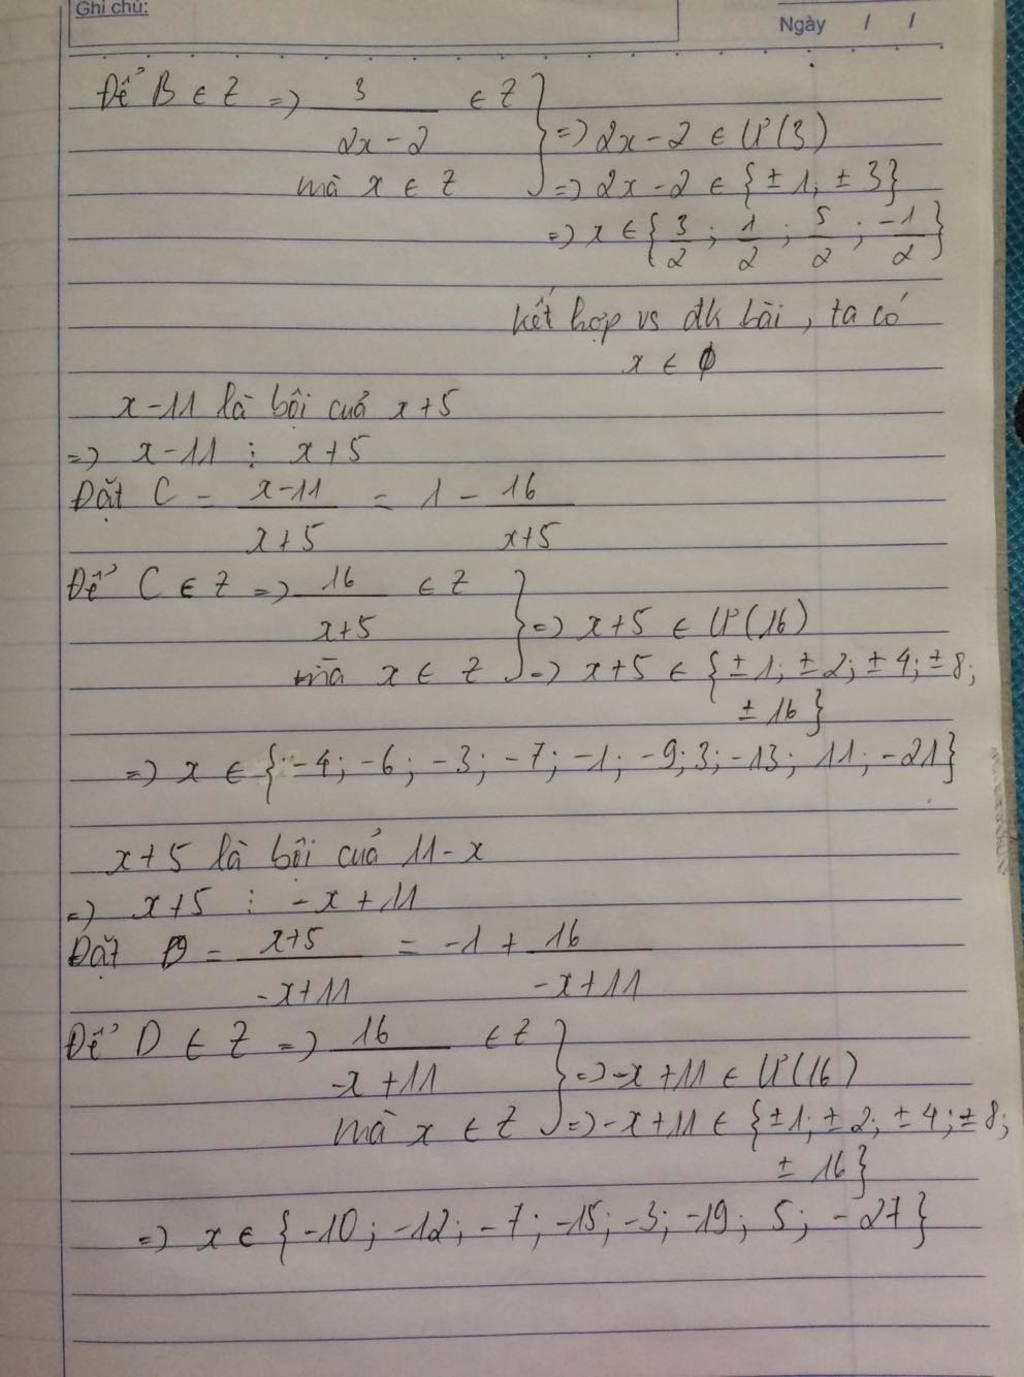 Ghi chú:
Ngày / /
Để B ∈ Z => 3/(2x-2) ∈ Z
mà x ∈ Z } => 2x-2 ∈ Ư(3)
=> 2x-2 ∈ {±1, ±3}
=> x ∈ {3/2; 1/2; 5/2; -1/2}
kết hợp vs đk bài, ta có
x ∈ ϕ
x-11 là bội cuả x+5
=> x-11 ⋮ x+5
Đặt C = (x-11)/(x+5) = 1 - 16/(x+5)
Để C ∈ Z => 16/(x+5) ∈ Z
mà x ∈ Z } => x+5 ∈ Ư(16)
=> x+5 ∈ {±1; ±2; ±4; ±8;
±16}
=> x ∈ {-4; -6; -3; -7; -1; -9; 3; -13; 11; -21}
x+5 là bội cuả 11-x
=> x+5 ⋮ -x+11
Đặt D = (x+5)/(-x+11) = -1 + 16/(-x+11)
Để D ∈ Z => 16/(-x+11) ∈ Z
mà x ∈ Z } => -x+11 ∈ Ư(16)
=> -x+11 ∈ {±1; ±2; ±4; ±8;
±16}
=> x ∈ {-10; -12; -7; -15; -3; -19; 5; -27}